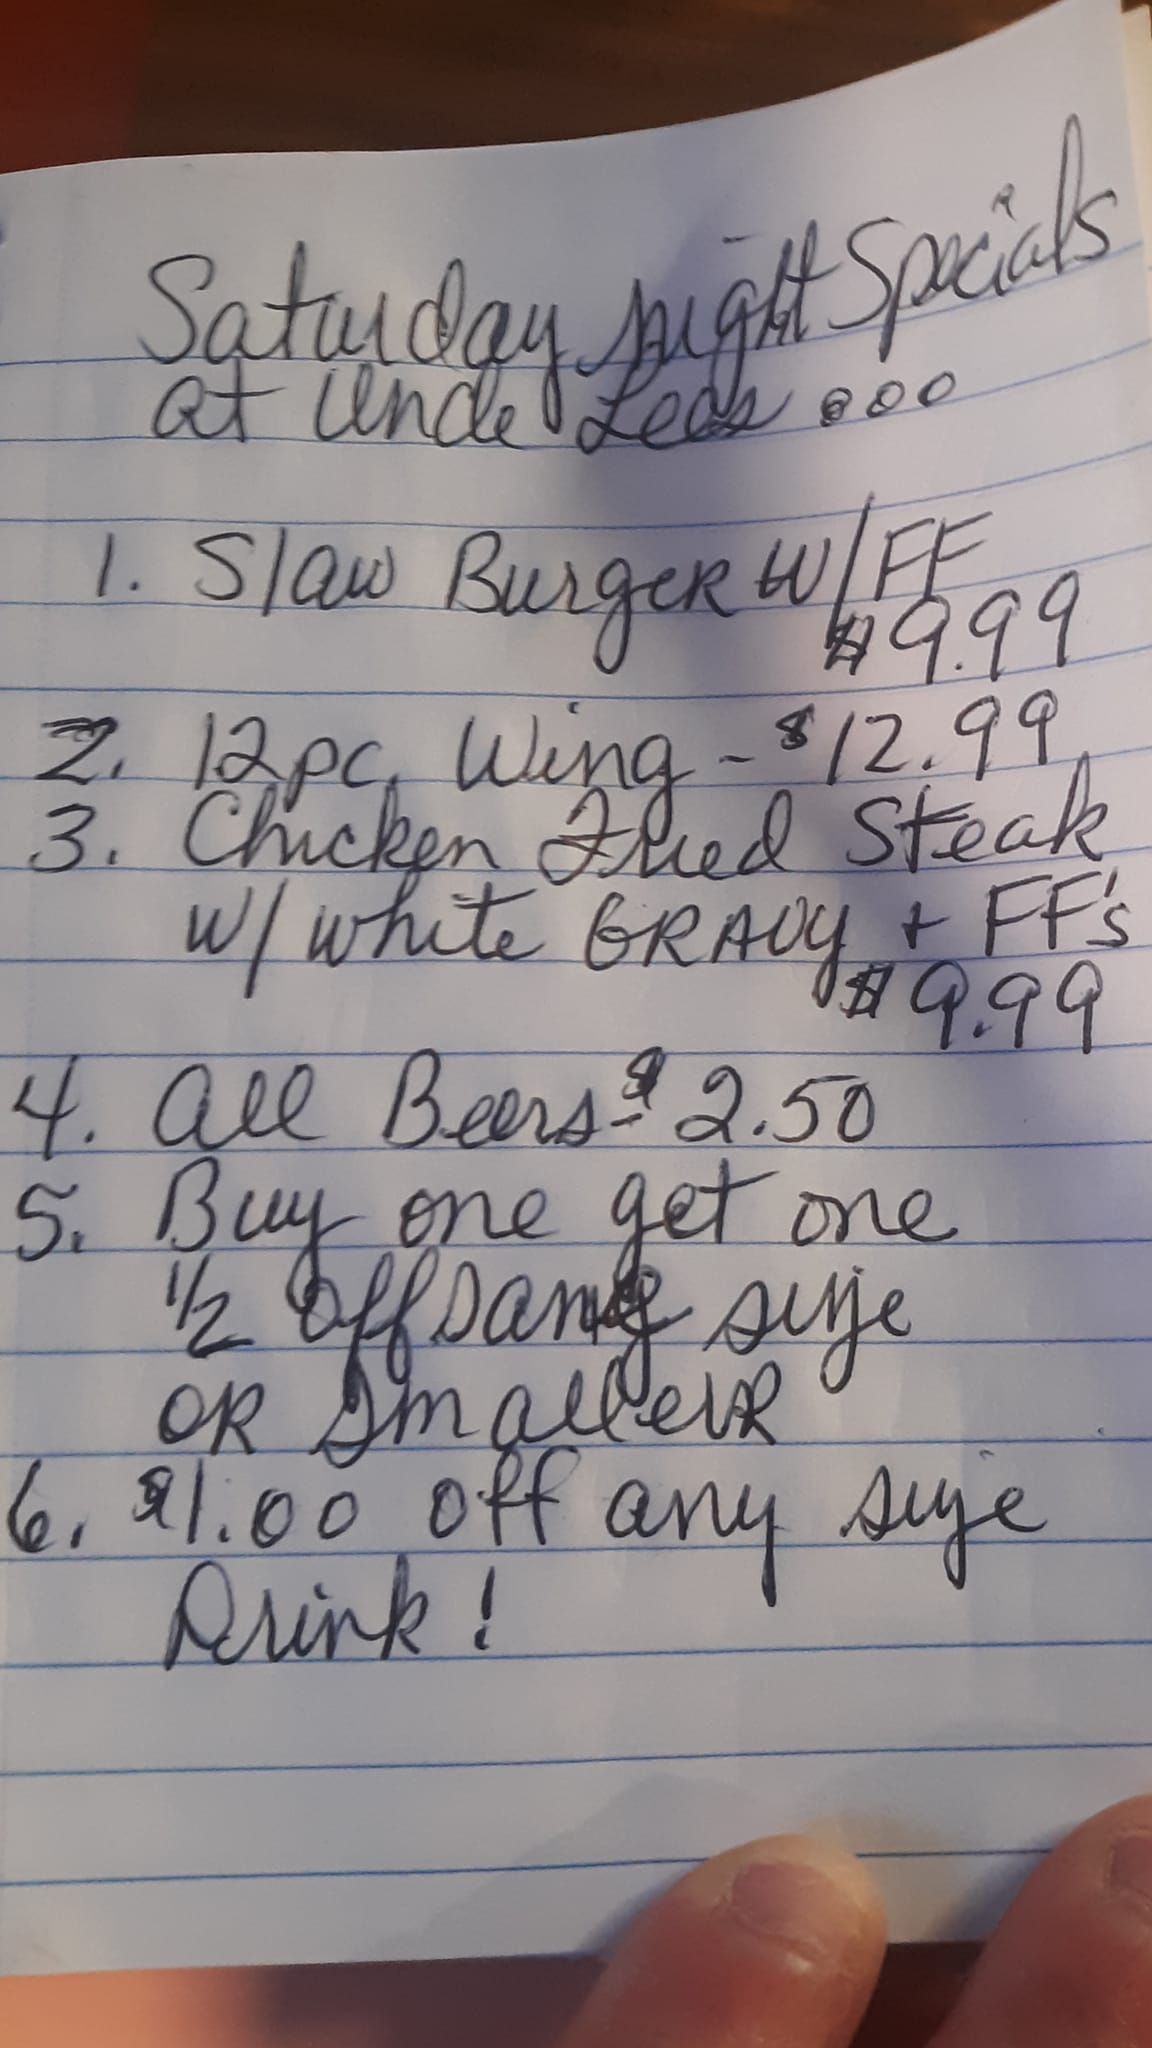 Saturday night Specials
at Uncle Lees ...
1. Slaw Burger W/FF
$9.99
2. 12pc. Wing - $12.99
3. Chicken Fried Steak
W/ white GRAVY + FF's
$9.99
4. All Beers - $2.50
5. Buy one get one
1/2 off same size
OR Smaller
6. $1.00 off any size
Drink!